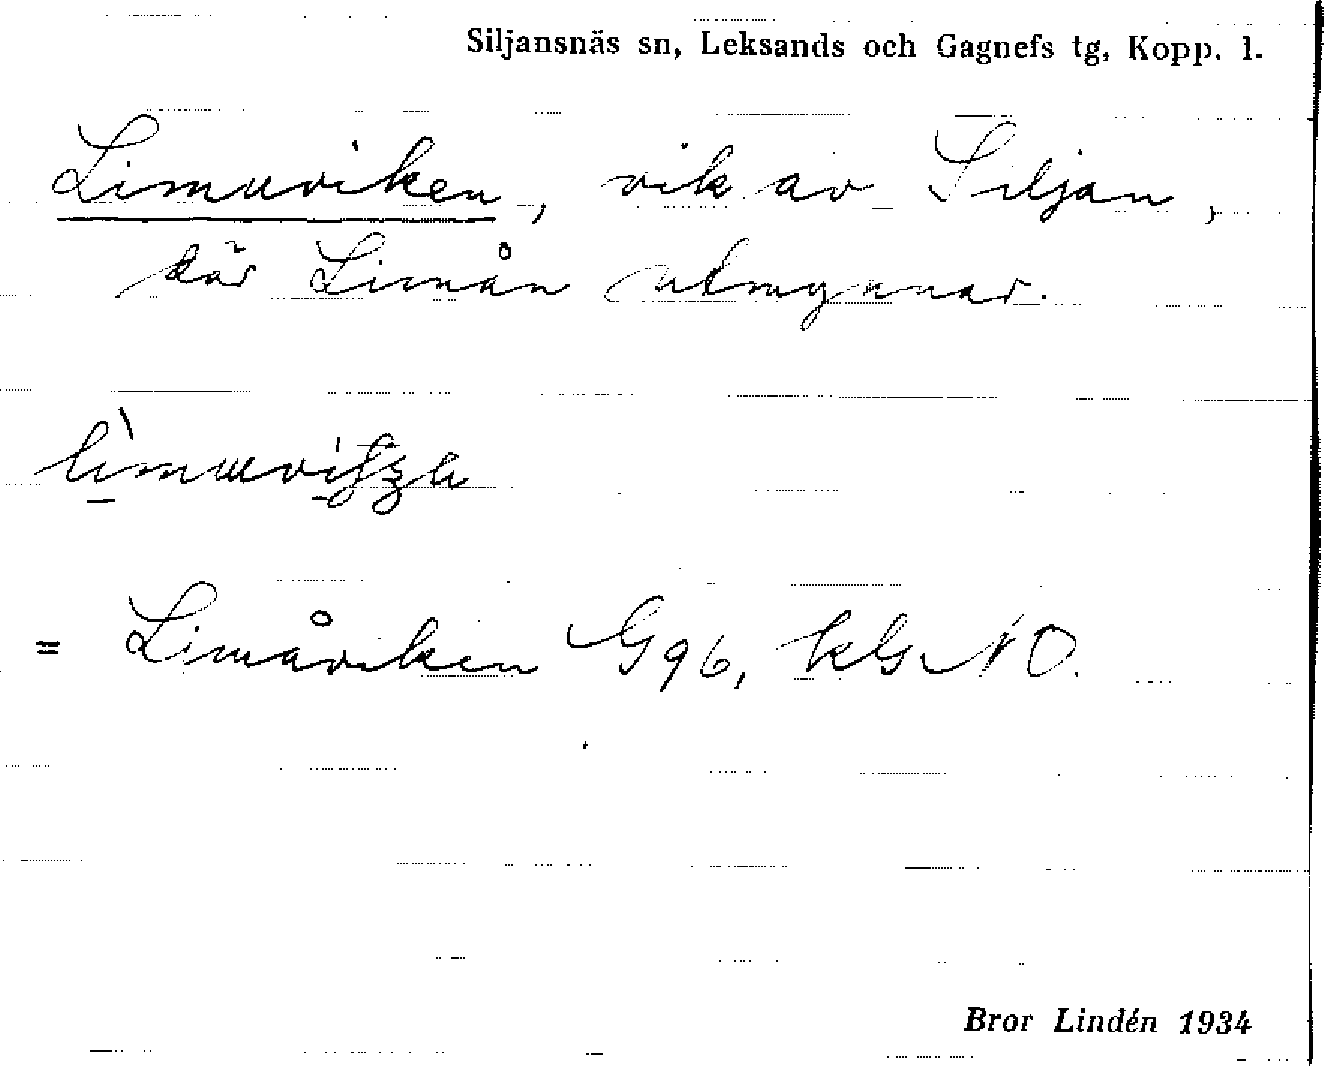 Siljansnäs sn, Leksands och Gagnefs tg, Kopp. l.
Limuviken, vik av Siljan,
där Limån utmynnar.
= Limåviken G96, kG NO.
Bror Lindén 1934